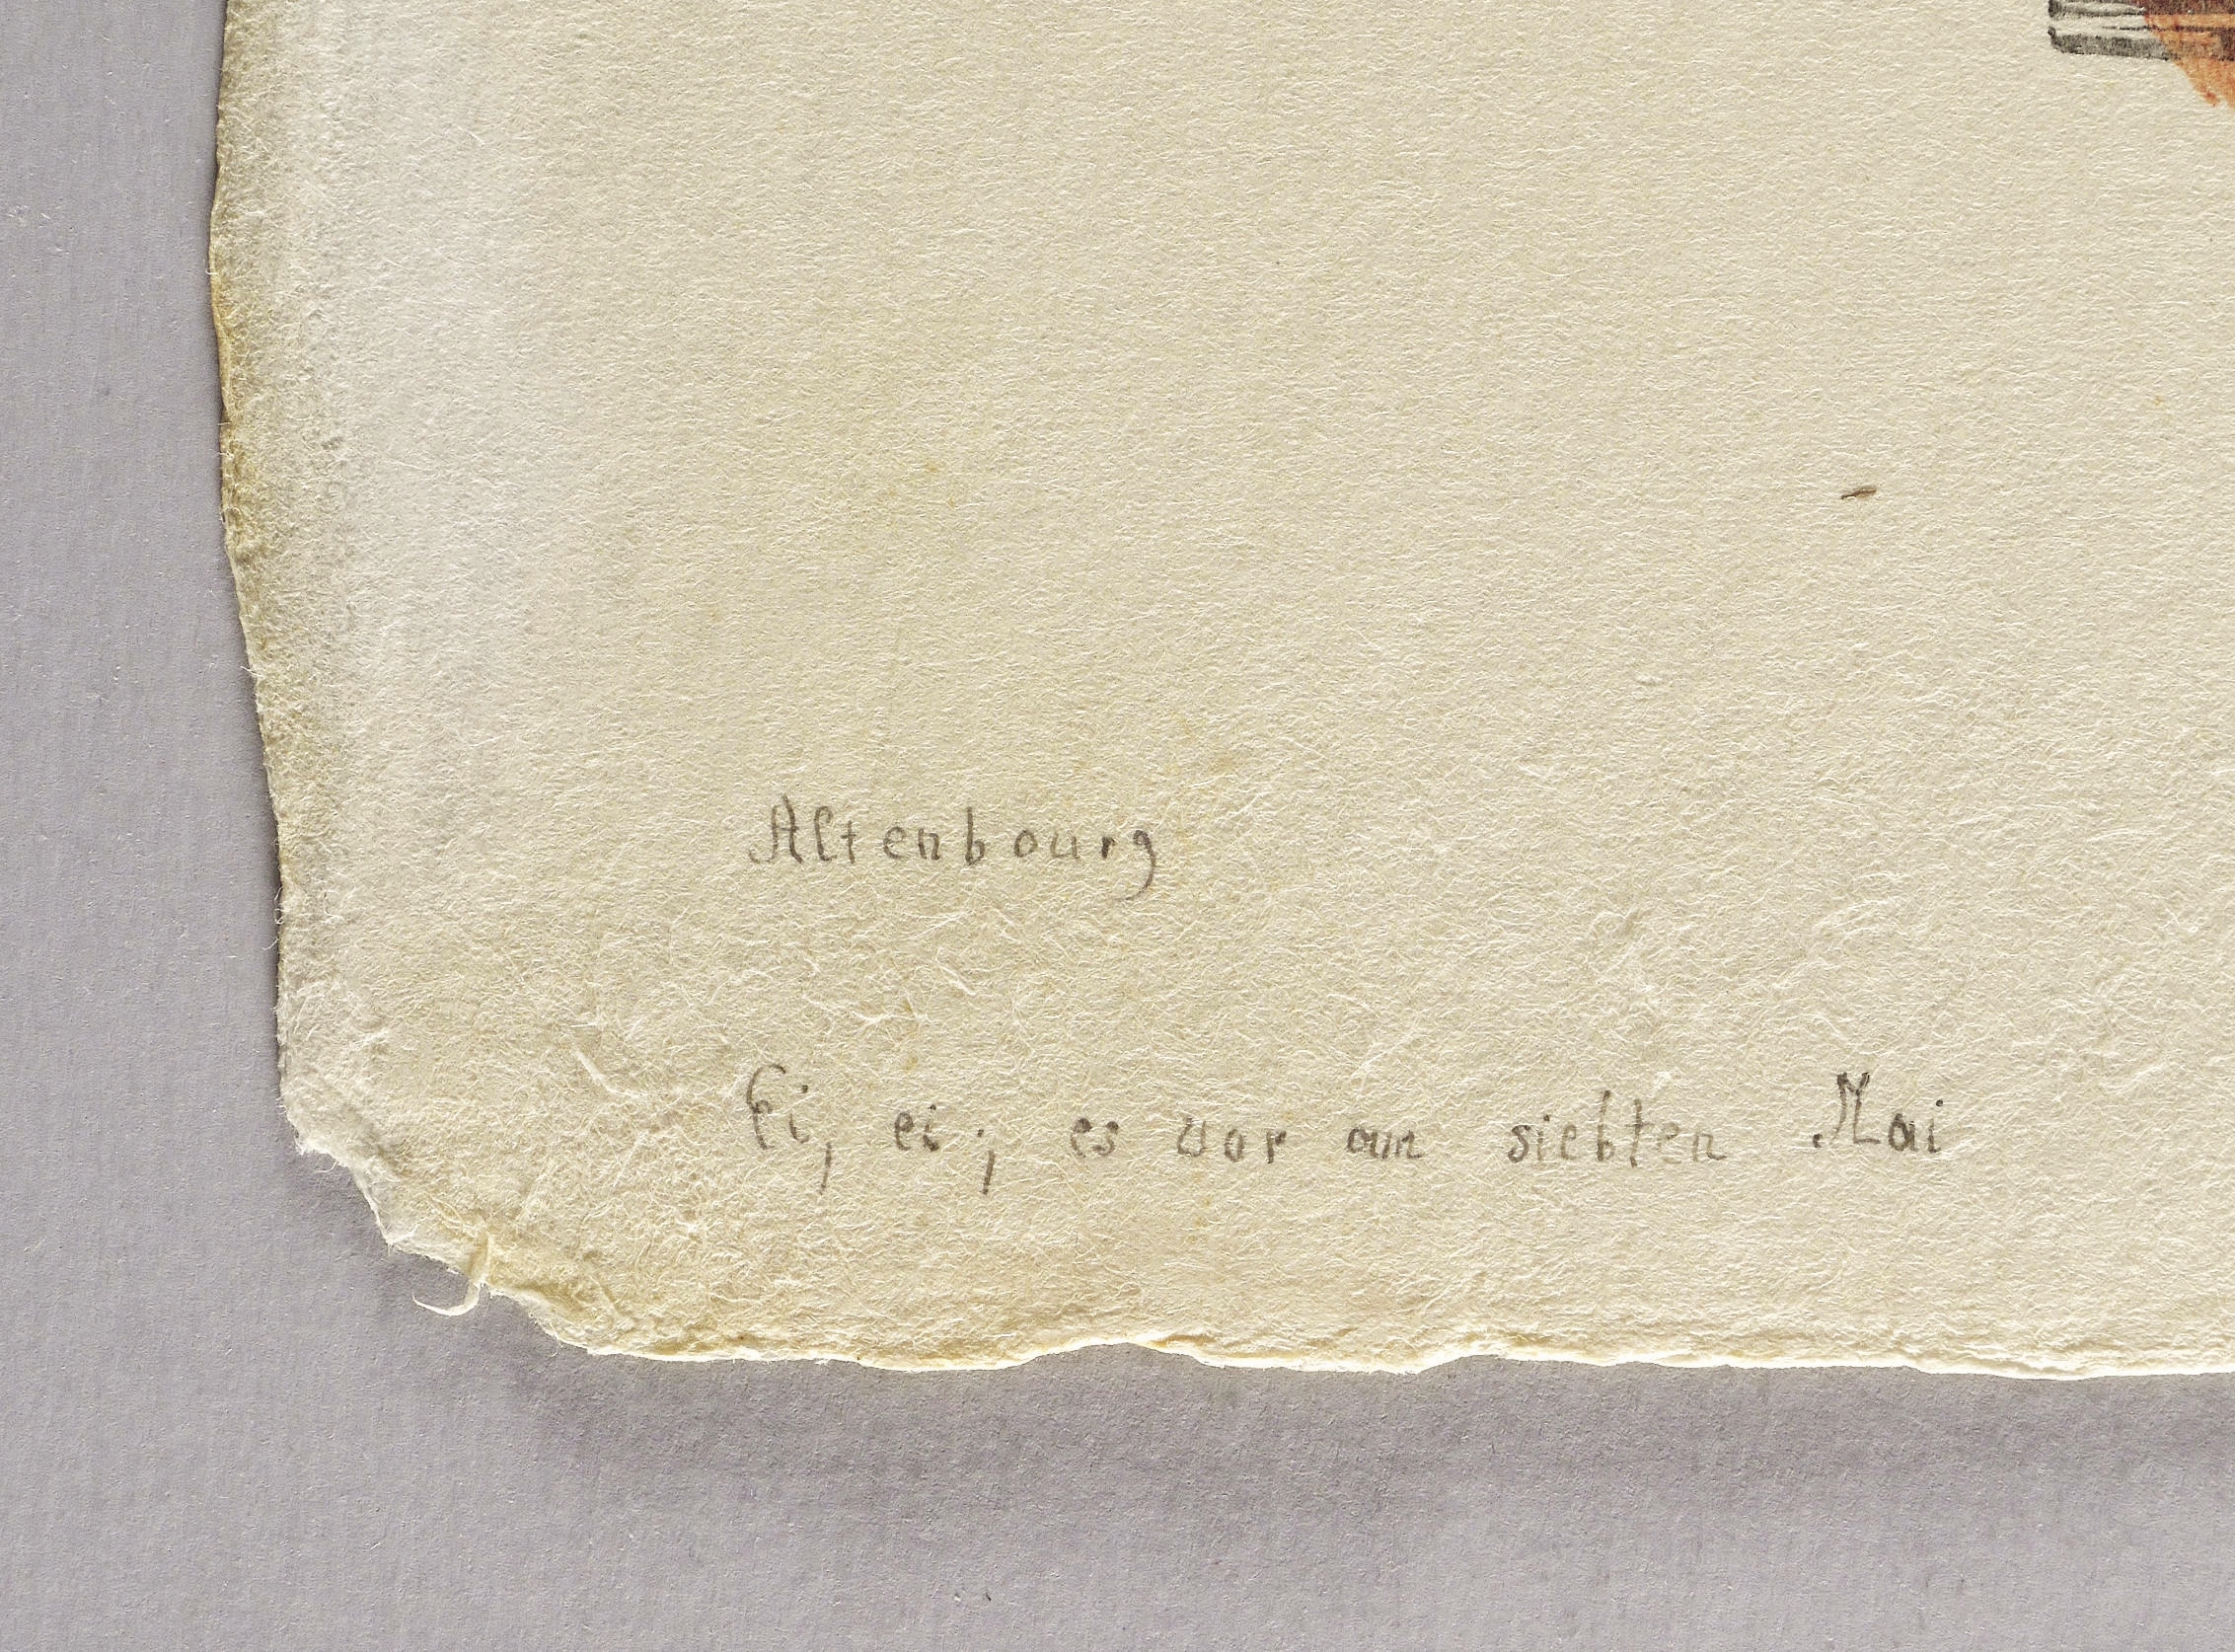 Altenbourg
Ei, ei; es war am siebten Mai